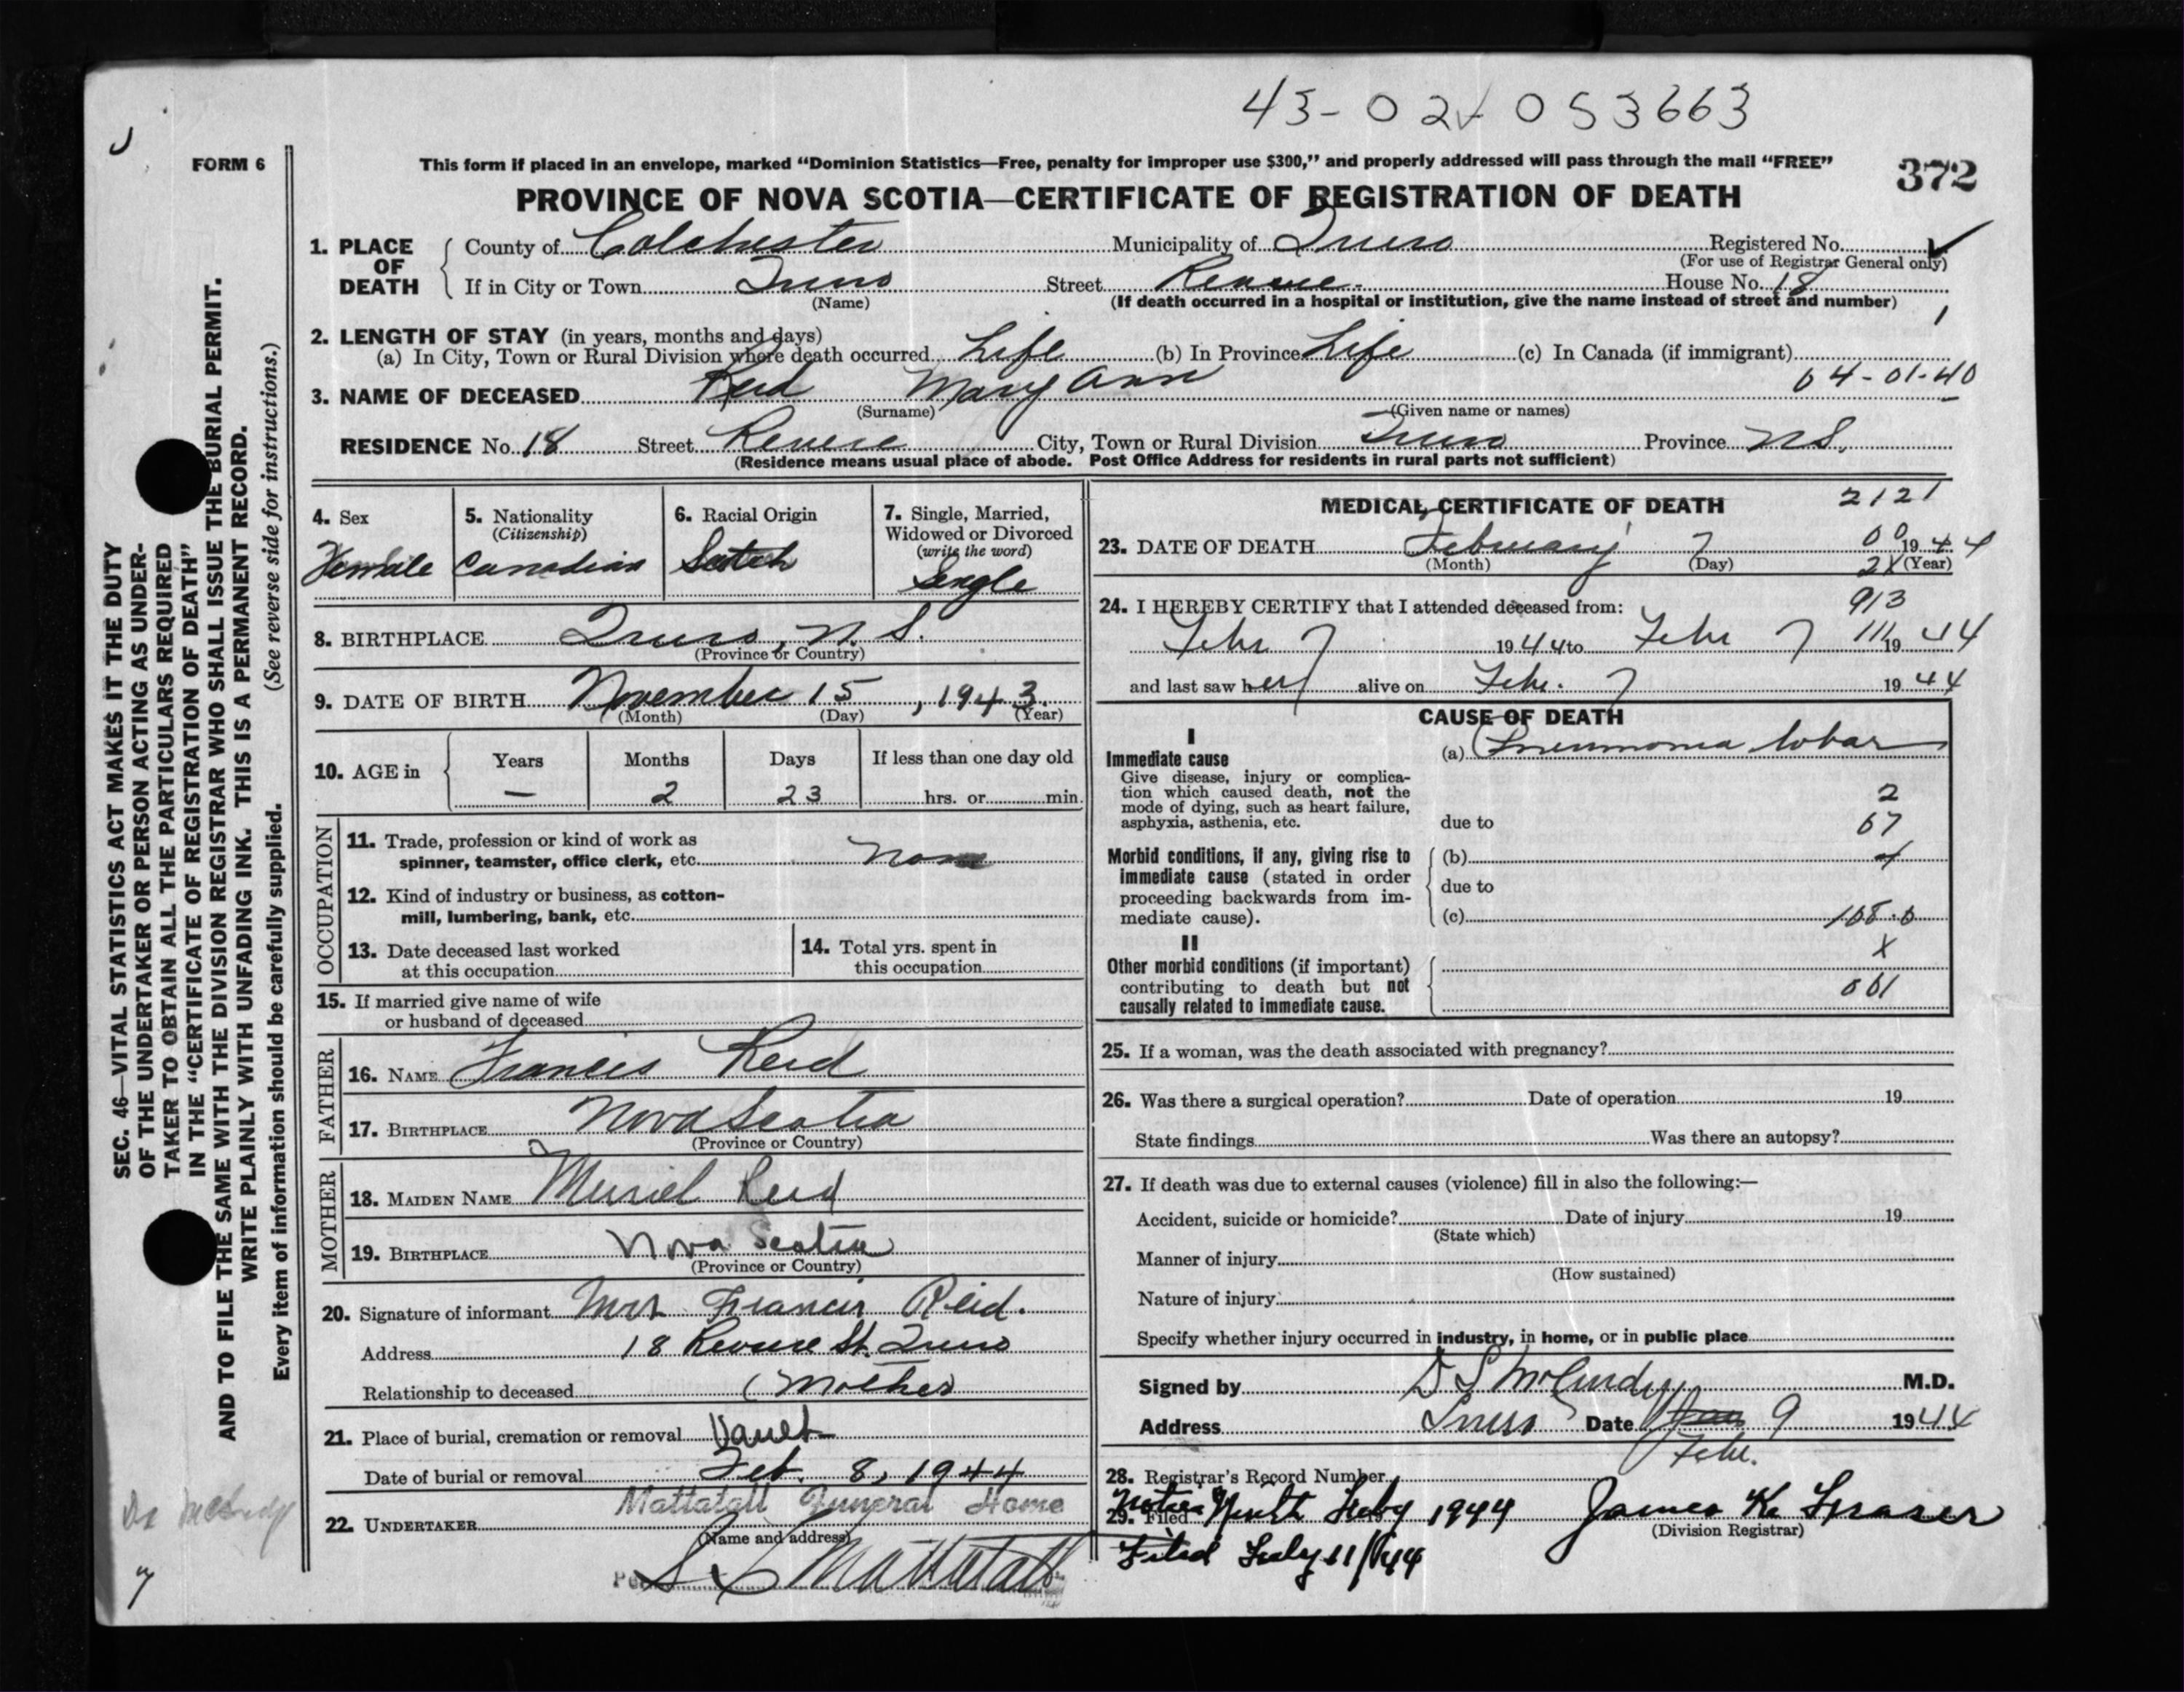 43-02 053663
FORM 6
This form if placed in an envelope, marked "Dominion Statistics—Free, penalty for improper use $300," and properly addressed will pass through the mail "FREE"
372
PROVINCE OF NOVA SCOTIA—CERTIFICATE OF REGISTRATION OF DEATH
1. PLACE OF DEATH
County of Colchester Municipality of Truro Registered No.
(For use of Registrar General only)
If in City or Town Truro Street House No. 18
(Name) (If death occurred in a hospital or institution, give the name instead of street and number)
2. LENGTH OF STAY (in years, months and days)
(a) In City, Town or Rural Division where death occurred Life (b) In Province Life (c) In Canada (if immigrant)
64-01-40
3. NAME OF DECEASED Reid Mary Ann
(Surname) (Given name or names)
RESIDENCE No. 18 Street Revere City, Town or Rural Division Truro Province N.S.
(Residence means usual place of abode. Post Office Address for residents in rural parts not sufficient)
4. Sex
Female
5. Nationality
(Citizenship)
Canadian
6. Racial Origin
Scotch
7. Single, Married,
Widowed or Divorced
(write the word)
Single
8. BIRTHPLACE Truro, N.S.
(Province or Country)
9. DATE OF BIRTH November 15, 1943.
(Month) (Day) (Year)
10. AGE in
Years Months Days If less than one day old
— 2 23 hrs. or min.
OCCUPATION
11. Trade, profession or kind of work as
spinner, teamster, office clerk, etc. None
12. Kind of industry or business, as cotton-
mill, lumbering, bank, etc.
13. Date deceased last worked
at this occupation
14. Total yrs. spent in
this occupation
15. If married give name of wife
or husband of deceased
FATHER
16. NAME Francis Reid
17. BIRTHPLACE Nova Scotia
(Province or Country)
MOTHER
18. MAIDEN NAME Muriel Reid
19. BIRTHPLACE Nova Scotia
(Province or Country)
20. Signature of informant Mrs Francis Reid.
Address 18 Revere St. Truro
Relationship to deceased (Mother
21. Place of burial, cremation or removal Vault
Date of burial or removal Feb. 8, 1944
Mattatall Funeral Home
22. UNDERTAKER
(Name and address)
Mattatall
MEDICAL CERTIFICATE OF DEATH
2121
23. DATE OF DEATH February 7 1944
(Month) (Day) (Year)
24. I HEREBY CERTIFY that I attended deceased from:
913
Febr 7 1944 to Febr 7 1944
and last saw her alive on Febr. 7 1944
CAUSE OF DEATH
I
Immediate cause
Give disease, injury or complica-
tion which caused death, not the
mode of dying, such as heart failure,
asphyxia, asthenia, etc.
(a) Pneumonia lobar
2
due to 67
Morbid conditions, if any, giving rise to
immediate cause (stated in order
proceeding backwards from im-
mediate cause).
(b) 4
due to
(c) 108.0
X
II
Other morbid conditions (if important)
contributing to death but not
causally related to immediate cause.
001
25. If a woman, was the death associated with pregnancy?
26. Was there a surgical operation? Date of operation 19
State findings Was there an autopsy?
27. If death was due to external causes (violence) fill in also the following:—
Accident, suicide or homicide? Date of injury 19
(State which)
Manner of injury
(How sustained)
Nature of injury
Specify whether injury occurred in industry, in home, or in public place
Signed by D S McCurdy M.D.
Address Truro Date 9 1944
Febr.
28. Registrar's Record Number
29. Filed Feby 1944 James K. Fraser
(Division Registrar)
Filed Feby 11/44
SEC. 46—VITAL STATISTICS ACT MAKES IT THE DUTY
OF THE UNDERTAKER OR PERSON ACTING AS UNDER-
TAKER TO OBTAIN ALL THE PARTICULARS REQUIRED
IN THE "CERTIFICATE OF REGISTRATION OF DEATH"
AND TO FILE THE SAME WITH THE DIVISION REGISTRAR WHO SHALL ISSUE THE BURIAL PERMIT.
WRITE PLAINLY WITH UNFADING INK. THIS IS A PERMANENT RECORD.
Every item of information should be carefully supplied. (See reverse side for instructions.)